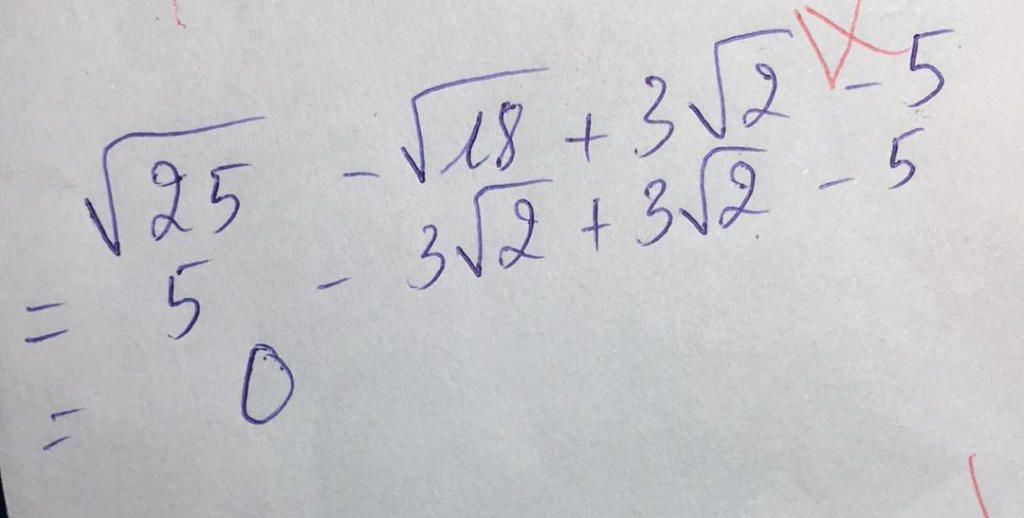 √25 - √18 + 3√2 - 5
= 5 - 3√2 + 3√2 - 5
= 0